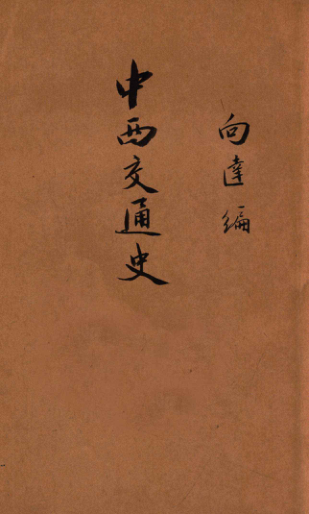 向達編
中西交通史